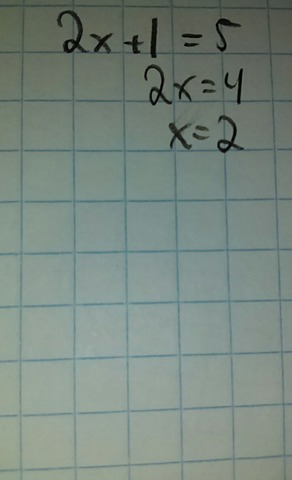 2x+1=5
2x=4
x=2